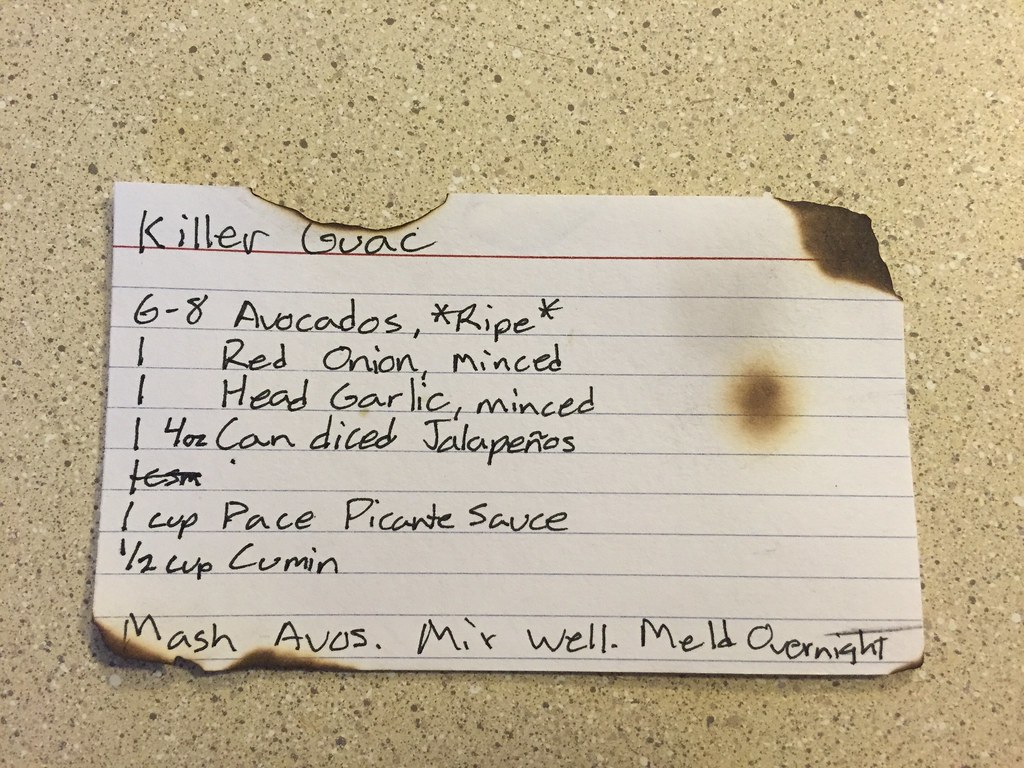 Killer Guac
6-8 Avocados, *Ripe*
1 Red Onion, minced
1 Head Garlic, minced
1 4oz Can diced Jalapeños
1 cup Pace Picante Sauce
1/2 cup Cumin
Mash Avos. Mix Well. Meld Overnight